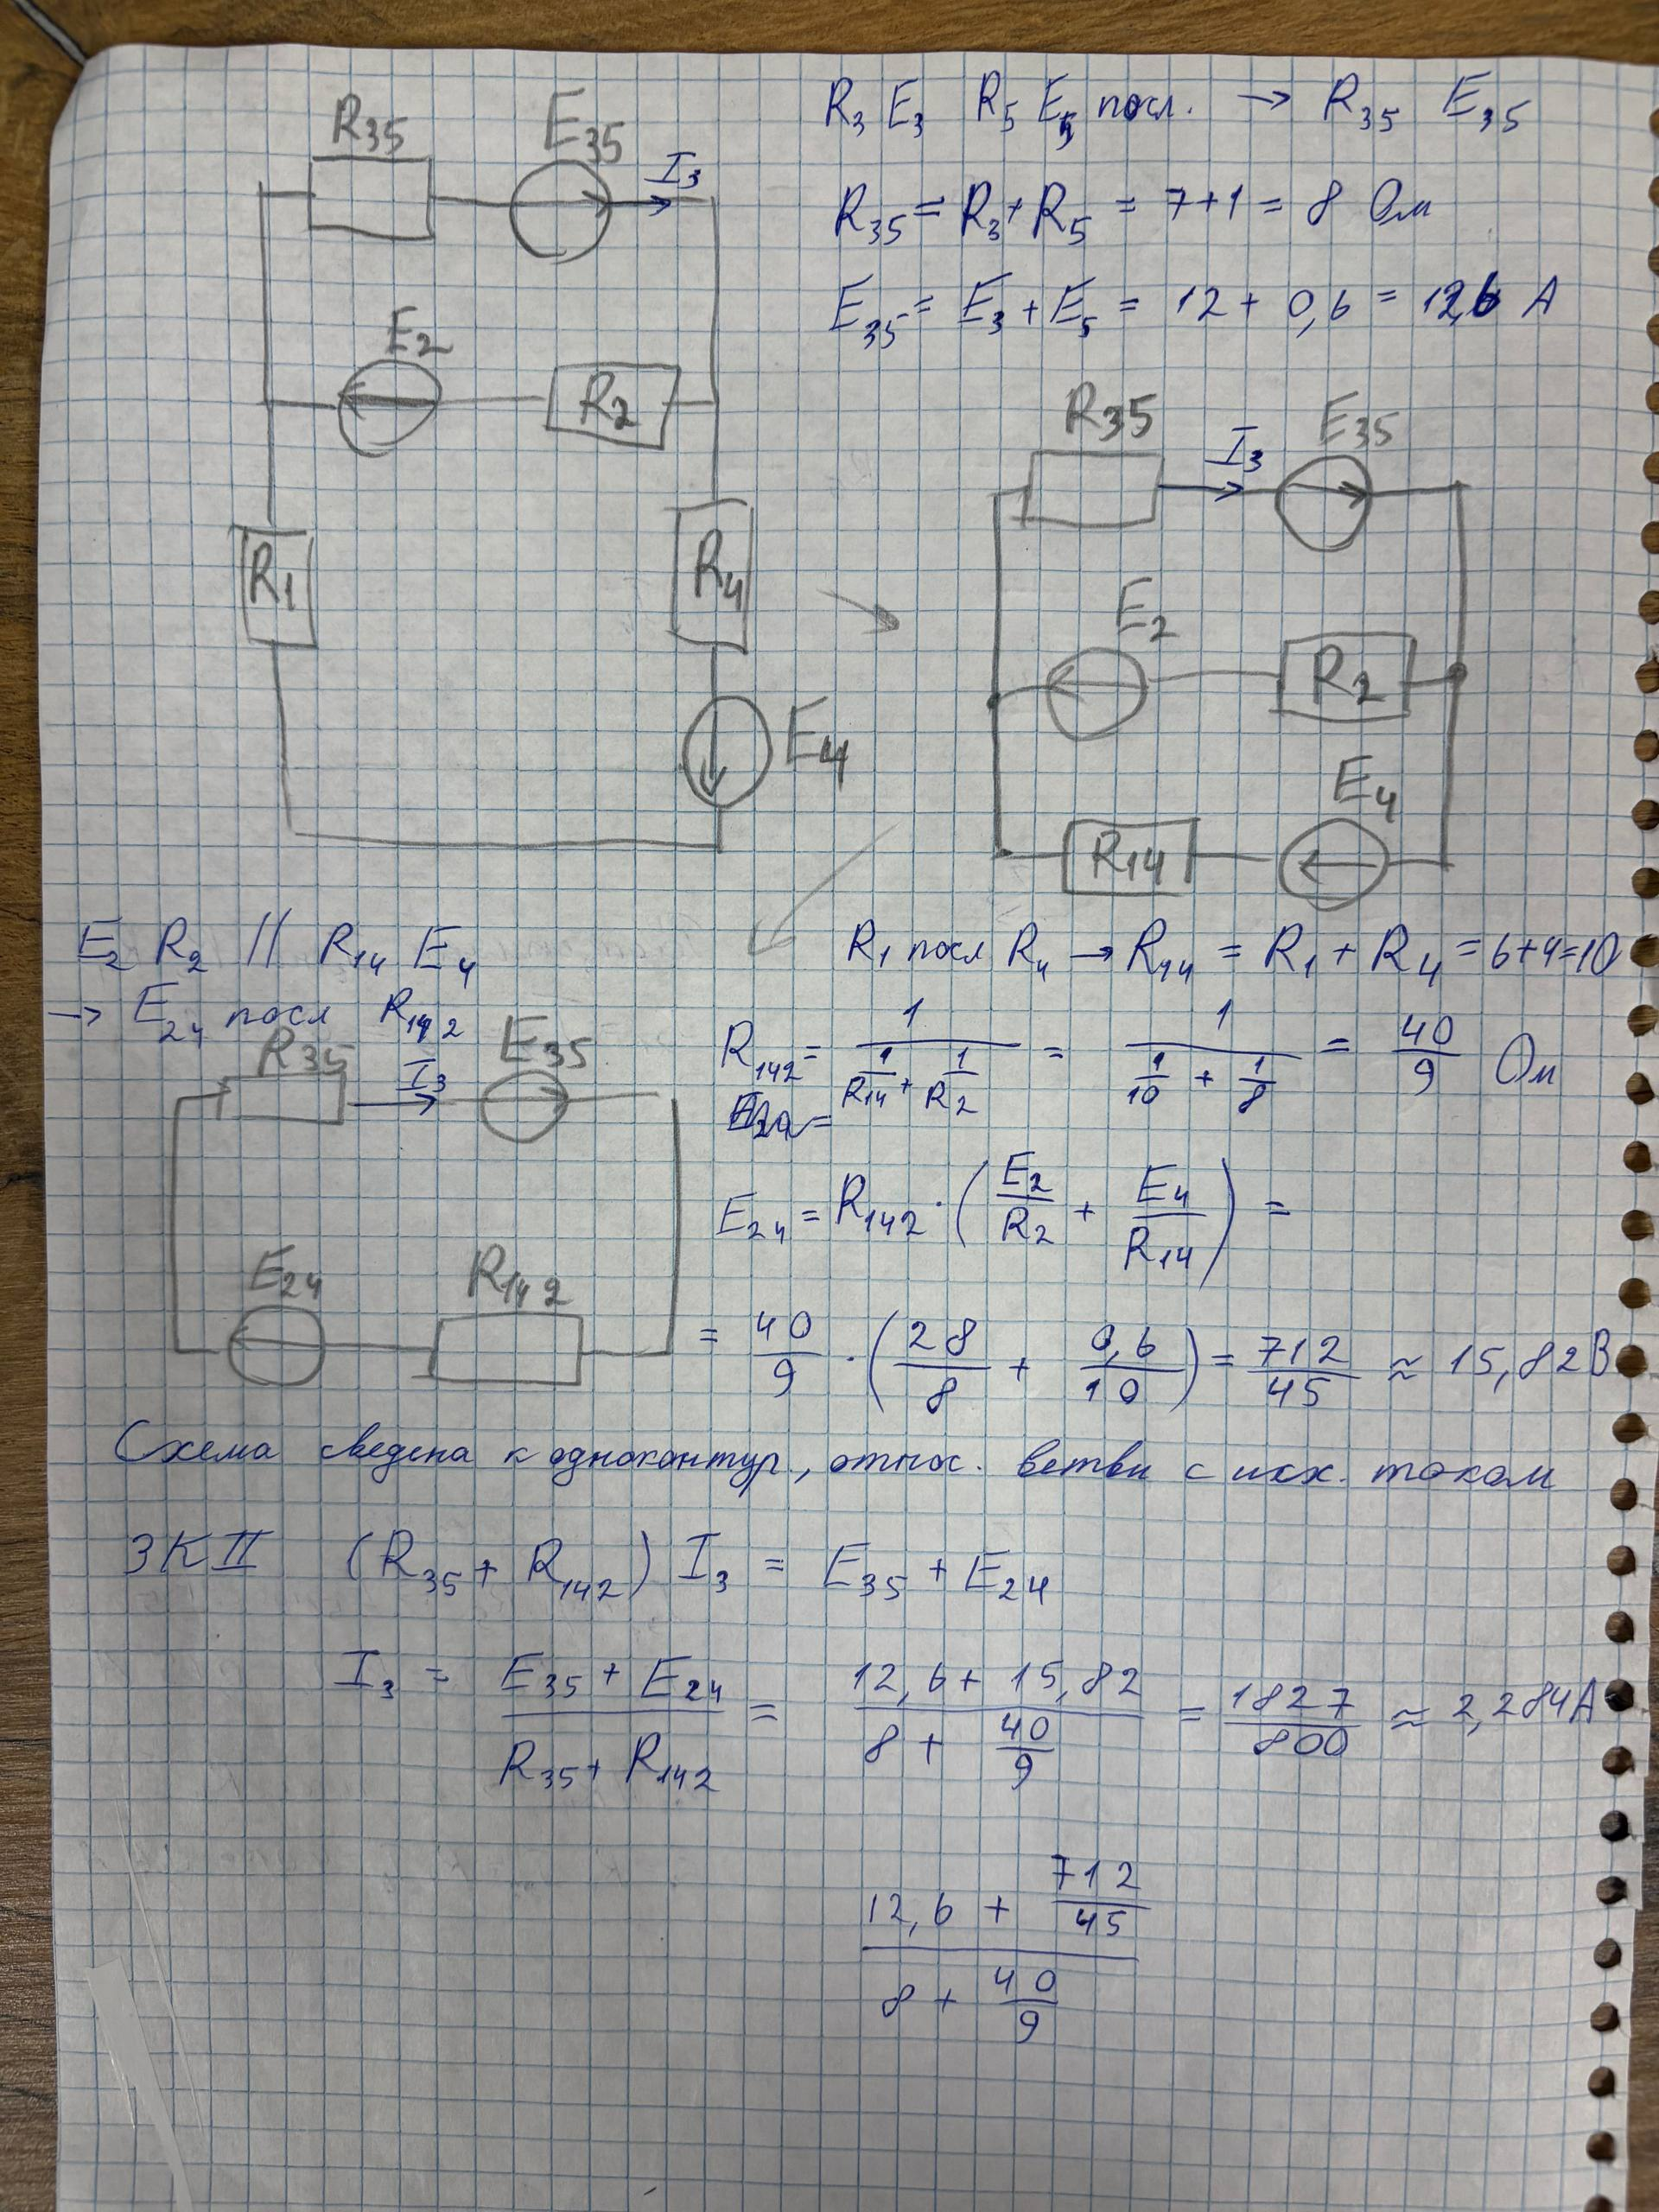 R35 E35 I3
R3 E3 R5 E5 посл. → R35 E35
R35 = R3 + R5 = 7+1 = 8 Ом
E35 = E3 + E5 = 12 + 0,6 = 12,6 А
E2 R2
R1 R4
E4
R35 I3 E35
E2 R2
E4
R14
E2 R2 // R14 E4
→ E24 посл R142
R1 посл R4 → R14 = R1 + R4 = 6+4=10
R142 = 1 / (1/R14 + 1/R2) = 1 / (1/10 + 1/8) = 40/9 Ом
R35 I3 E35
E24 = R142 · (E2/R2 + E4/R14) =
E24 R142
= 40/9 · (28/8 + 0,6/10) = 712/45 ≈ 15,82 В
Схема сведена к одноконтур, относ. ветви с исх. током
ЗКII (R35 + R142) I3 = E35 + E24
I3 = (E35 + E24) / (R35 + R142) = (12,6 + 15,82) / (8 + 40/9) = 1827/800 ≈ 2,284А
(12,6 + 712/45) / (8 + 40/9)